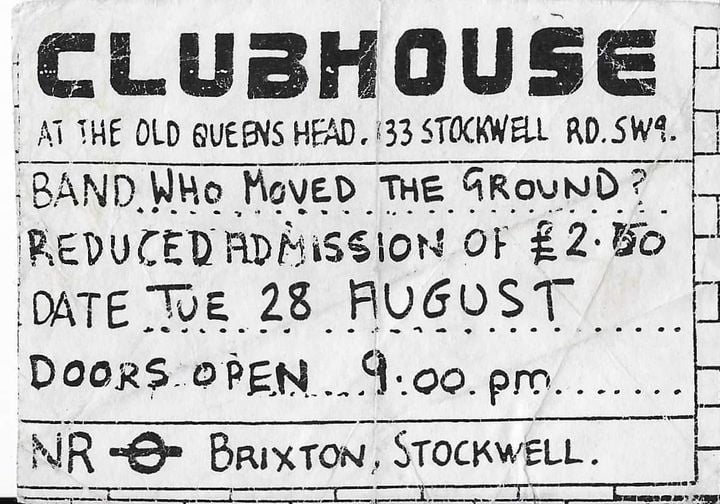 CLUBHOUSE
AT THE OLD QUEENS HEAD. 133 STOCKWELL RD. SW9.
BAND WHO MOVED THE GROUND?
REDUCED ADMISSION OF £2.
DATE TUE 28 AUGUST
DOORS OPEN 9.00 pm
NR BRIXTON, STOCKWELL.